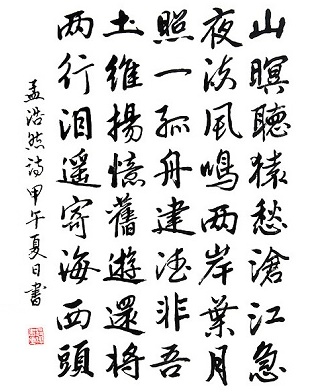 山暝聽猿愁滄江急
夜流風鳴两岸葉月
照一孤舟建德非吾
土維揚憶舊遊還將
两行泪遥寄海西頭
孟浩然詩甲午夏日書